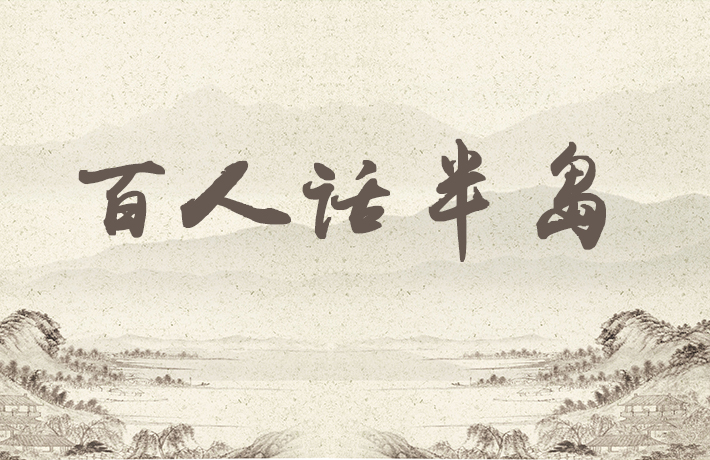 百人话半岛